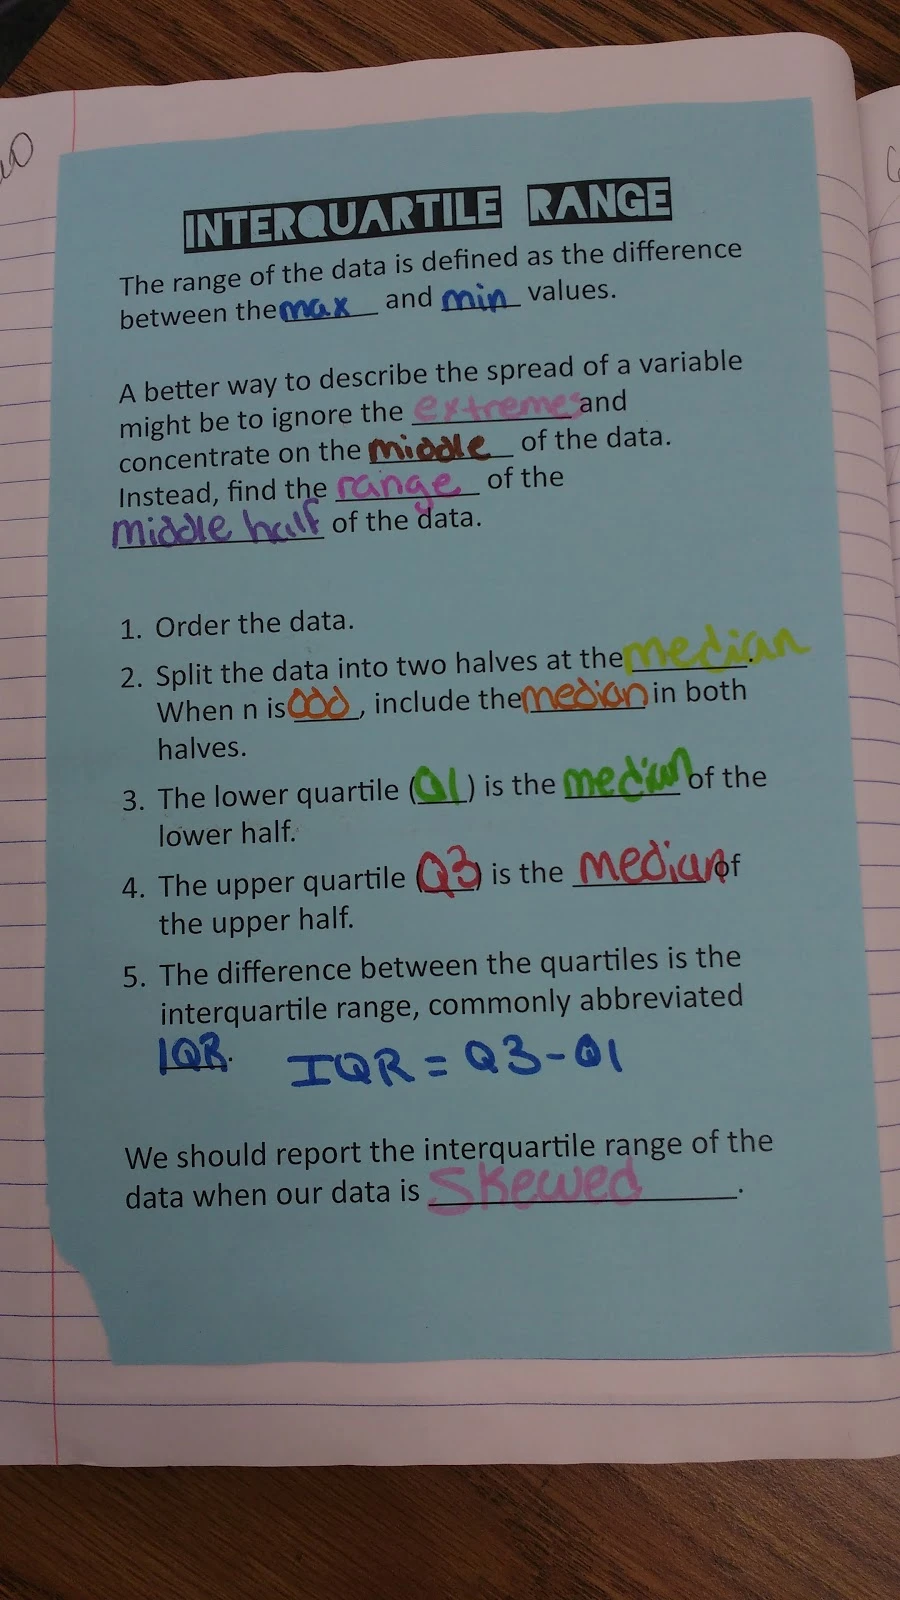 INTERQUARTILE RANGE
The range of the data is defined as the difference
between the max and min values.
A better way to describe the spread of a variable
might be to ignore the extremes and
concentrate on the middle of the data.
Instead, find the range of the
middle half of the data.
1. Order the data.
2. Split the data into two halves at the median.
When n is odd, include the median in both
halves.
3. The lower quartile (Q1) is the median of the
lower half.
4. The upper quartile (Q3) is the median of
the upper half.
5. The difference between the quartiles is the
interquartile range, commonly abbreviated
IQR. IQR = Q3-Q1
We should report the interquartile range of the
data when our data is Skewed.